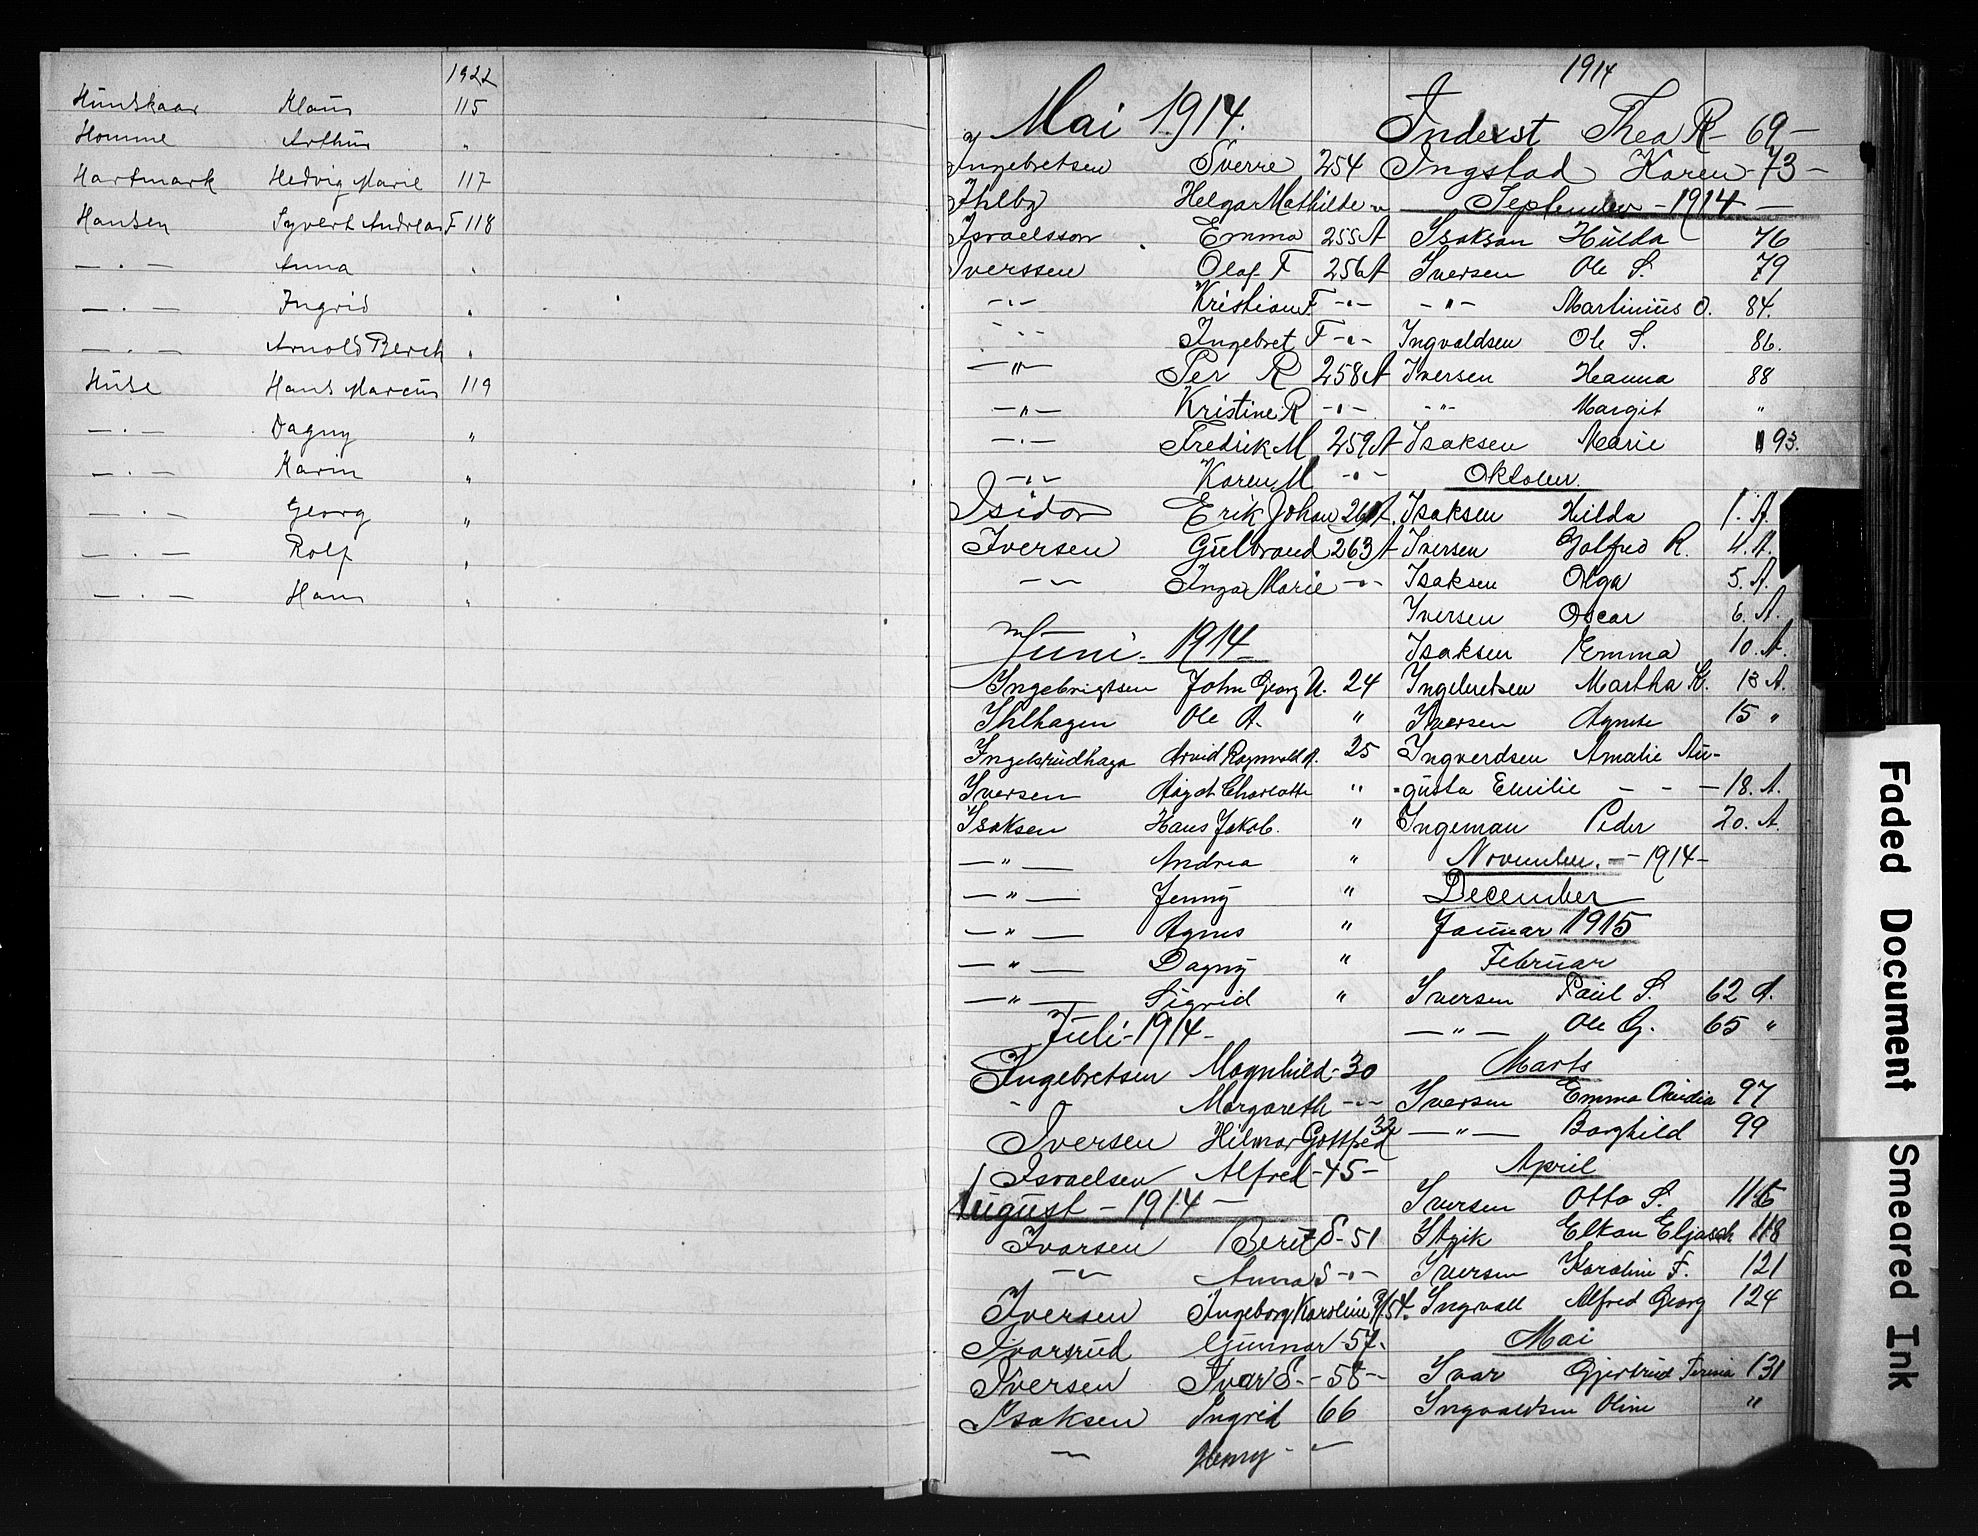 1922
Hunskaar Klaus 115
Homme Arthur "
Hartmark Hedvig Marie 117
Hansen Syvert Andreas F 118
— . — Anna "
— . — Ingrid "
— . — Arnold Berch "
Huse Hans Marcus 119
— . — Dagny "
— . — Karin "
— . — Georg "
— . — Rolf "
— . — Hans "
Mai 1914.
Ingebretsen Sverre 254
Ihlby Helga Mathilde "
Israelsson Emma 255 A
Iverssen Olaf F 256 A
— " — Kristian F — " —
— " — Ingebret F — " —
— " — Per R 258 A
— " — Kristine R — " —
— " — Fredrik M 259 A
— " — Karen M — " —
Isidor Erik Johan 261 A.
Iversen Gulbrand 263 A
— " — Inga Marie — " —
Juni 1914
Ingebrigtsen John Georg N. 24
Ihlhagen Ole A. "
Ingelsrudhaga Arvid Ragnvald A. 25
Iversen Aagot Charlotte "
Isaksen Hans Jakob. "
— " — Andrea "
— " — Jenny "
— " — Agnes "
— " — Dagny "
— " — Sigrid "
Juli - 1914 -
Ingebretsen Magnhild - 30
- Margareth - " -
Iversen Hilmar Gottfred 32
Israelsen Alfred - 45 -
August - 1914 —
Ivarsen Beret S - 51
— " — Anna S - " -
Iversen Ingeborg Karoline 54.
Ivarsrud Gunnar - 57.
Iversen Ivar S. - 58 -
Isaksen Ingrid 66
— " — Henry - " -
1914
Indexst Thea R - 69 -
Ingstad Karen - 73 -
September - 1914 —
Isaksan Hulda 76
Iversen Ole S. 79
- " - Martinius O. 84.
Ingvaldsen Ole S. 86.
Iversen Hanna 88
- " - Margit "
Isaksen Marie 93.
Oktober.
Isaksen Hilda 1. A.
Iversen Golfred R. 4. A.
Isaksen Olga 5. A.
Iversen Oscar 6. A.
Isaksen Emma 10. A.
Ingebretsen Martha K. 13 A.
Iversen Agnete 15 "
Ingverdsen Amalie Au-
gusta Emilie - - - 18. A.
Ingeman Peder 20. A.
November. - 1914 -
December
Januar 1915
Februar
Iversen Paul S. 62 A.
— " — Ole G. 65 "
Marts
Iversen Emma Ovidia 97
— " — Borghild 99
April
Iversen Otto S. 115
Elkan Eljasch 118
Iversen Karoline F. 121
Ingvall Alfred Georg 124
Mai
Ivar Gjertrud 131
Ingvaldsen Oline "
Faded Document Smeared Ink